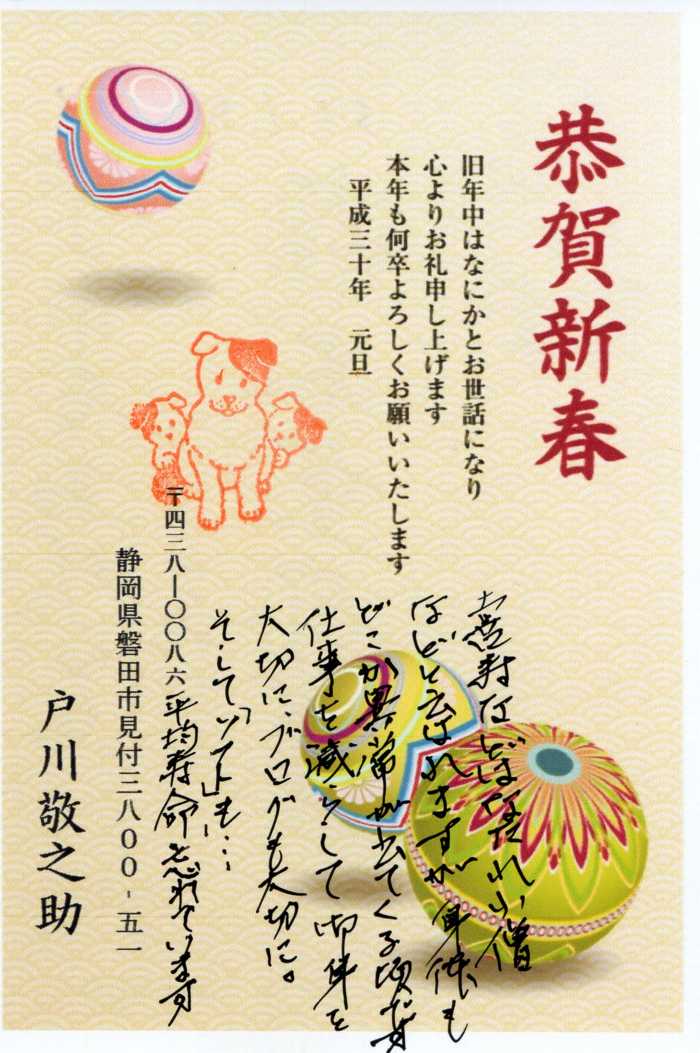 恭賀新春
旧年中はなにかとお世話になり
心よりお礼申し上げます
本年も何卒よろしくお願いいたします
平成三十年 元旦
喜寿などはなたれ小僧
などと云はれますが身体も
どこか異常が出てくる頃です
仕事を減らして御身を
大切に、ブログも大切に。
そして「いってト」も…
平均寿命を忘れています
〒四三八―〇〇八六
静岡県磐田市見付三八００-五一
戸川敬之助